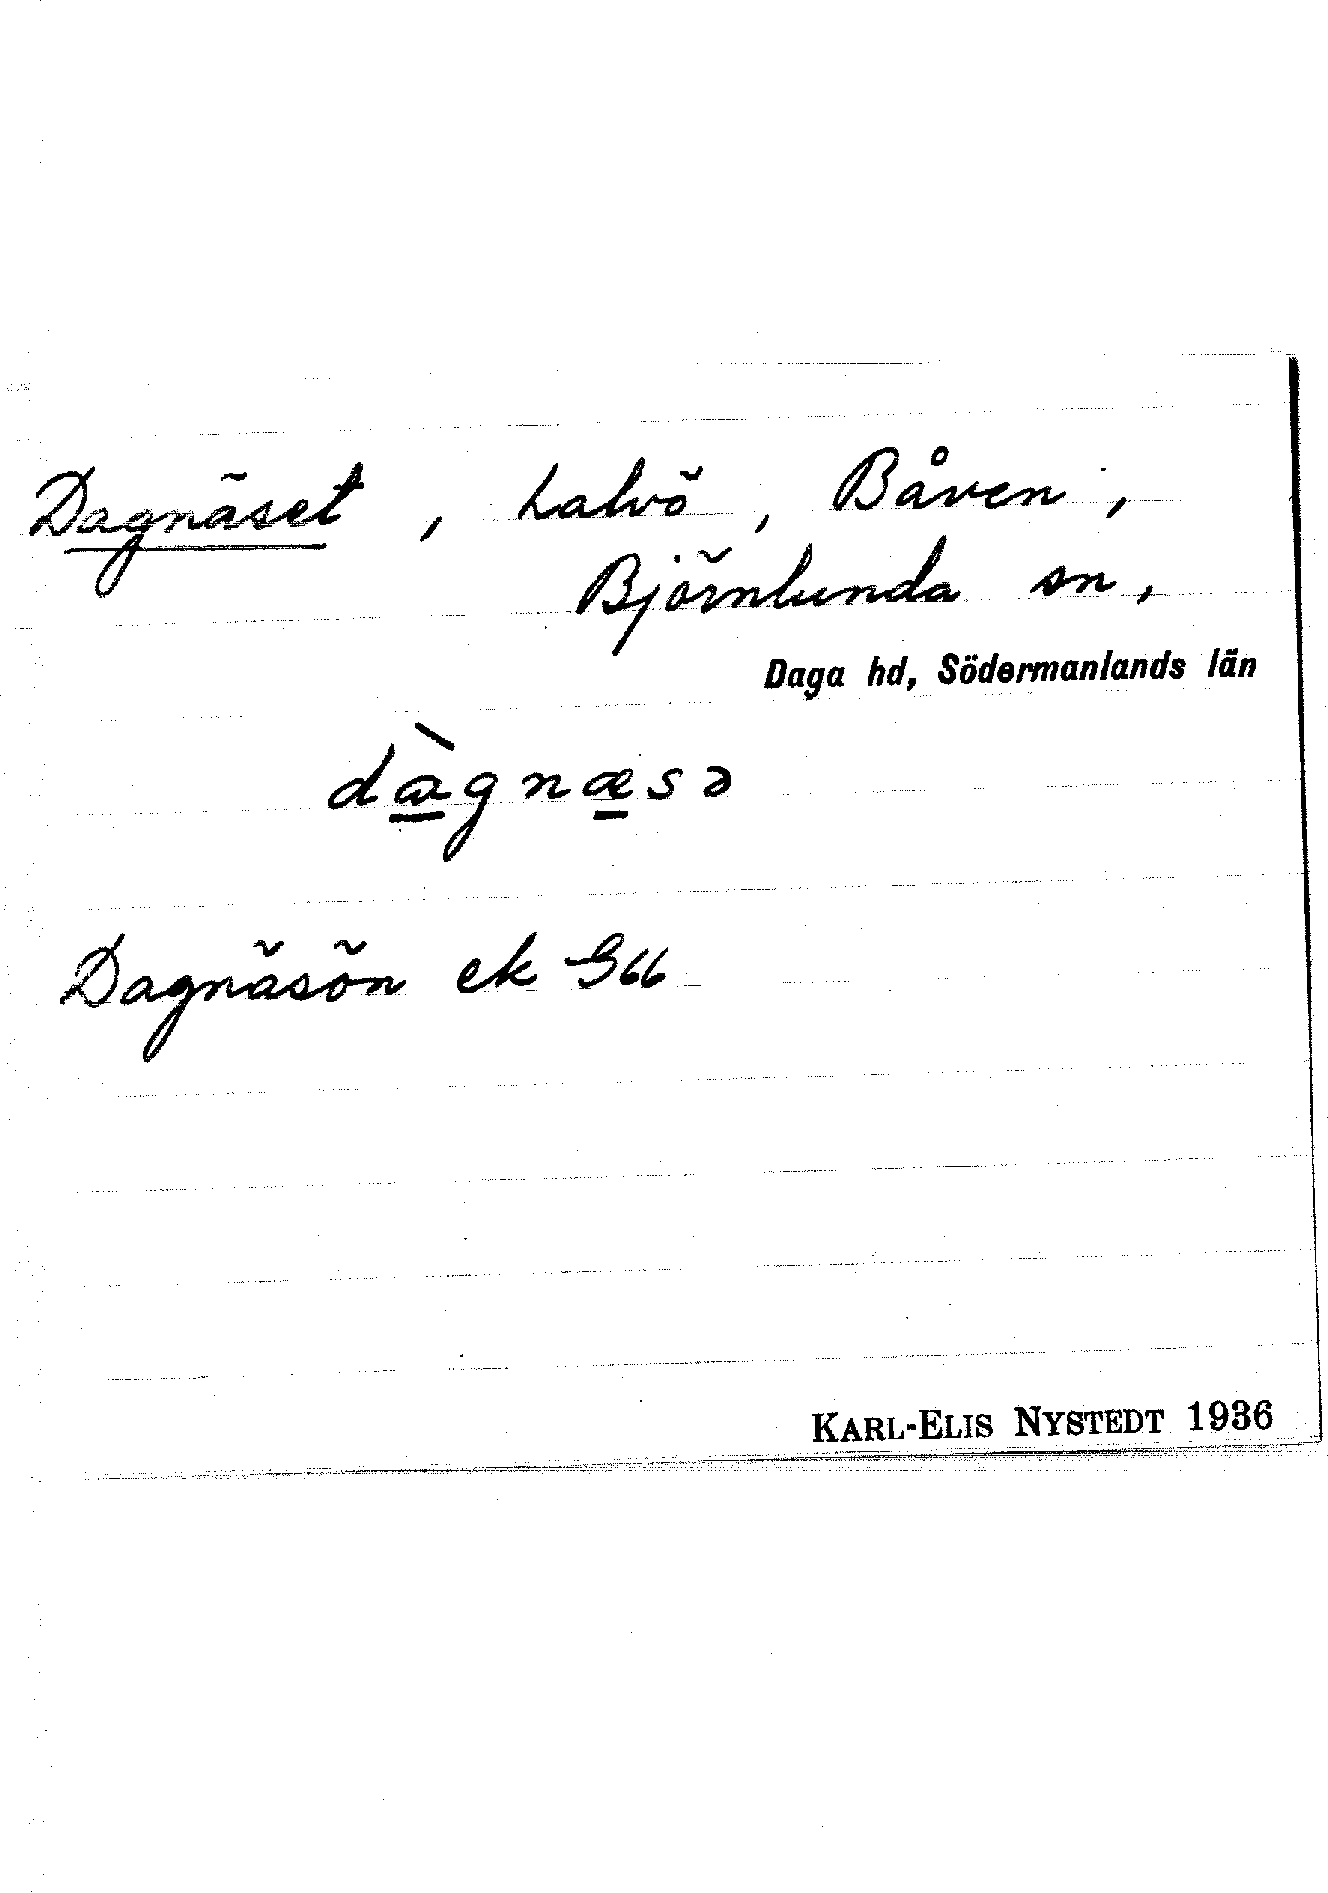 Dagnäset, halvö, Båven,
Björnlunda sn,
Daga hd, Södermanlands län
dàgnæsə
Dagnäsön ek G66
KARL-ELIS NYSTEDT 1936